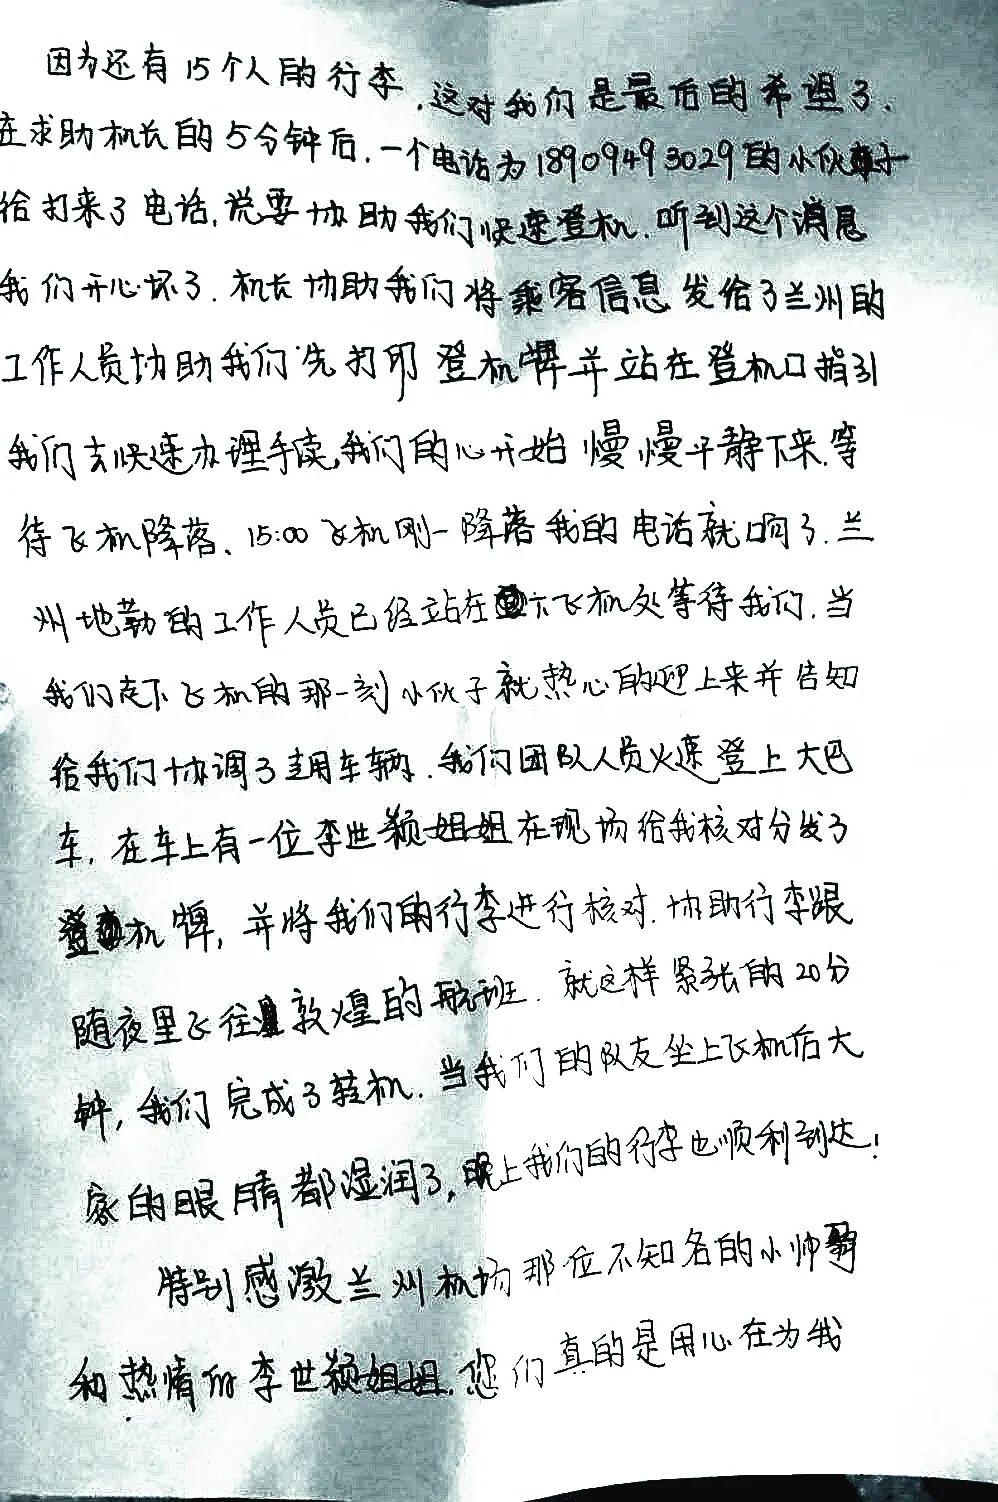 因为还有15个人的行李,这对我们是最后的希望了.
在求助机长的5分钟后.一个电话为18909493029的小伙子
给打来了电话,说要协助我们快速登机.听到这个消息
我们开心坏了.机长协助我们将乘客信息发给了兰州的
工作人员协助我们先打印登机牌并站在登机口指引
我们去快速办理手续,我们的心开始慢慢平静下来.等
待飞机降落、15:00飞机刚一降落我的电话就响了.兰
州地勤的工作人员已经站在下飞机处等待我们.当
我们走下飞机的那一刻小伙子就热心的迎上来并告知
给我们协调了专用车辆.我们团队人员火速登上大巴
车,在车上有一位李世颖姐姐在现场给我核对分发了
登机牌,并将我们的行李进行核对.协助行李跟
随夜里飞往敦煌的航班.就这样紧张的20分
钟,我们完成了转机.当我们的队友坐上飞机后大
家的眼睛都湿润了,晚上我们的行李也顺利到达!
特别感激兰州机场那位不知名的小帅哥
和热情的李世颖姐姐.您们真的是用心在为我